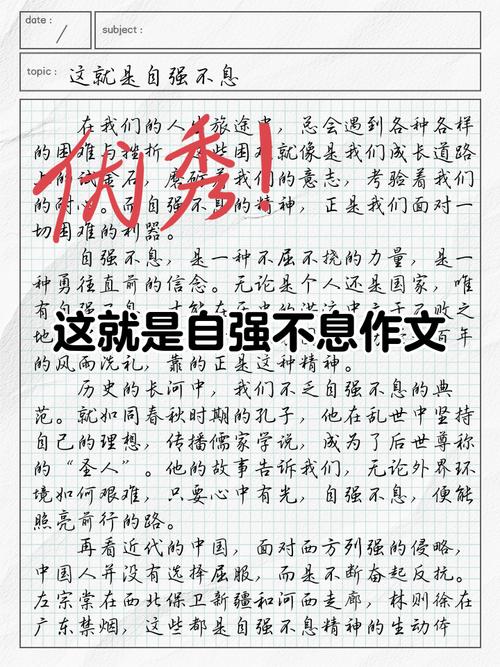 date :
subject :
topic : 这就是自强不息
在我们的人生旅途中，总会遇到各种各样
的困难与挫折，这些困难就像是我们成长道路
上的试金石，磨砺着我们的意志，考验着我们
的耐心。而自强不息的精神，正是我们面对一
切困难的利器。
优秀！
自强不息，是一种不屈不挠的力量，是一
种勇往直前的信念。无论是个人还是国家，唯
有自强不息，才能在历史的洪流中立于不败之
地
百年
这就是自强不息作文
的风雨洗礼，靠的正是这种精神。
历史的长河中，我们不乏自强不息的典
范。就如同春秋时期的孔子，他在乱世中坚持
自己的理想，传播儒家学说，成为了后世尊称
的“圣人”。他的故事告诉我们，无论外界环
境如何艰难，只要心中有光，自强不息，便能
照亮前行的路。
再看近代的中国，面对西方列强的侵略，
中国人并没有选择屈服，而是不断奋起反抗。
左宗棠在西北保卫新疆和河西走廊，林则徐在
广东禁烟，这些都是自强不息精神的生动体